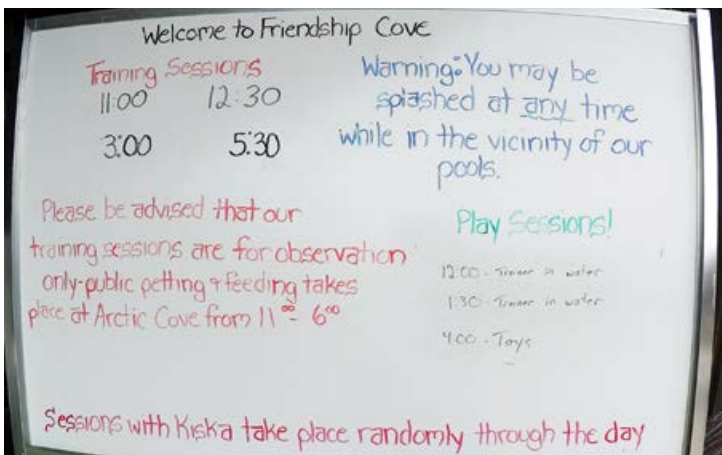 Welcome to Friendship Cove
Training Sessions
11:00 12:30
3:00 5:30
Warning: You may be
splashed at any time
while in the vicinity of our
pools.
Please be advised that our
training sessions are for observation
only-public petting & feeding takes
place at Arctic Cove from 11⁰⁰- 6⁰⁰
Play Sessions!
12:00 - Trainer in water
1:30 - Trainer in water
4:00 - Toys
Sessions with Kiska take place randomly through the day